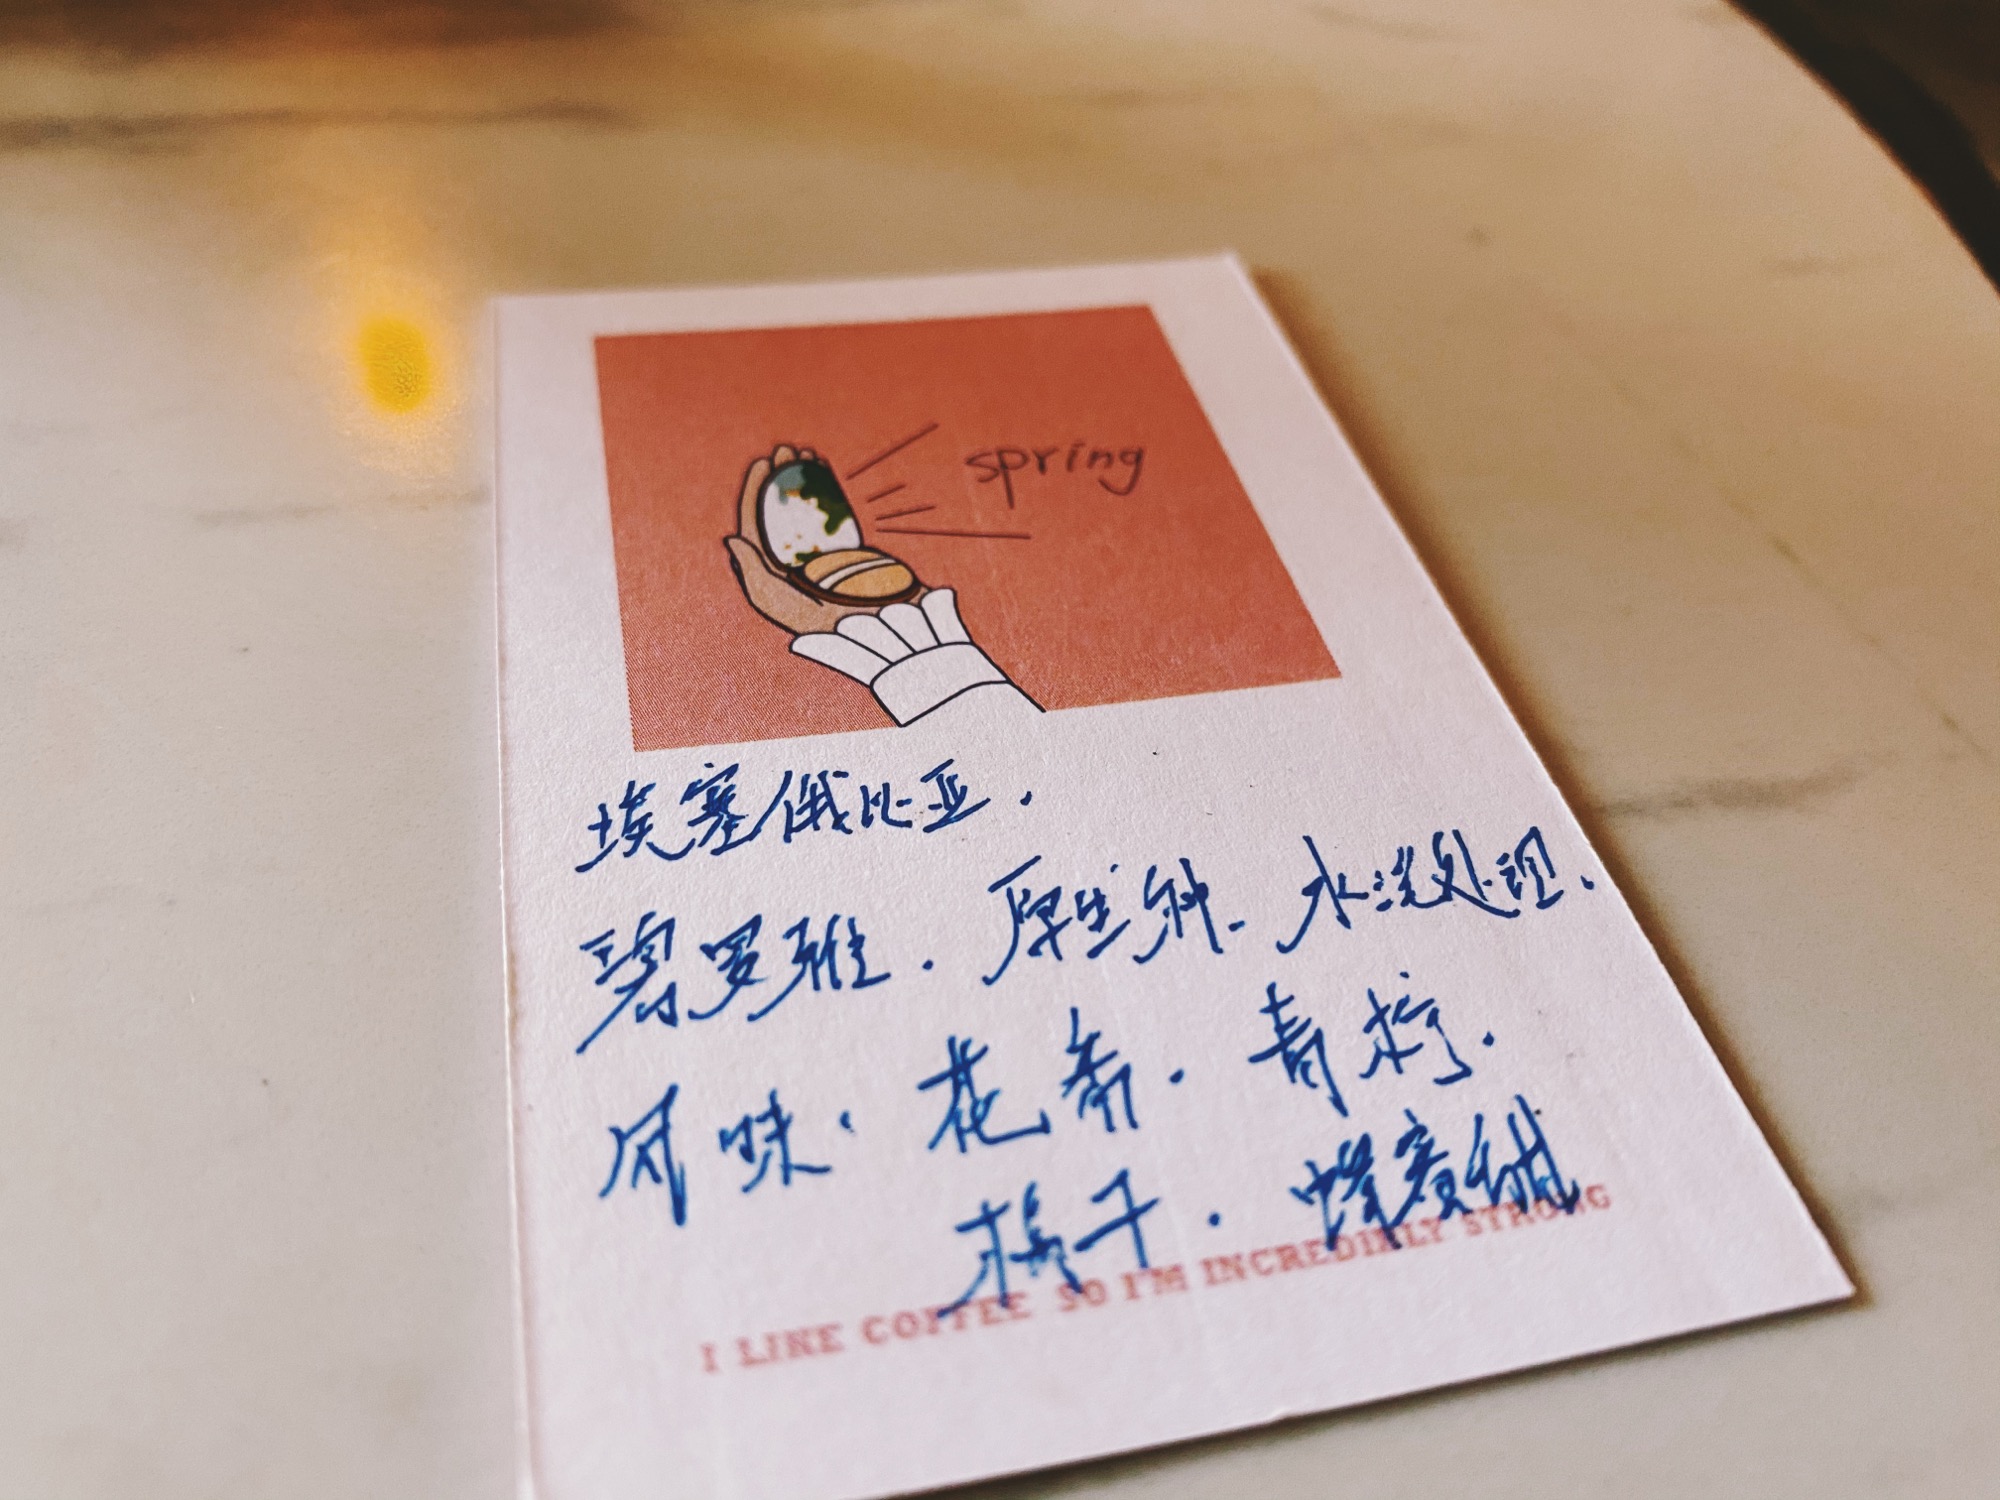 spring
埃塞俄比亚.
碧罗雅.原生种.水洗处理.
风味.花香.青柠.
橘子.蜂蜜甜
I LIKE COFFEE SO I'M INCREDIBLY STRONG